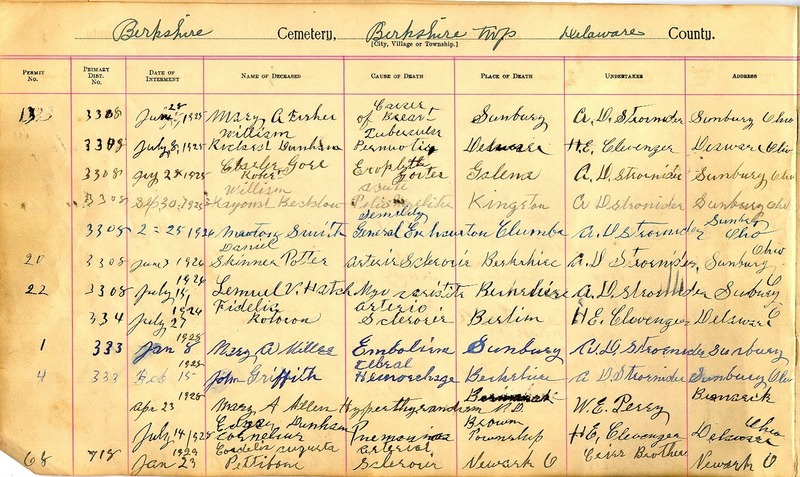 Berkshire Cemetery, Berkshire twp Delaware County.
[City, Village or Township.]
Permit No. Primary Dist. No. Date of Interment Name of Deceased Cause of Death Place of Death Undertaker Address
3308 June 28 1925 Mary A Fisher Cancer of Breast Sunbury A. D. Strosnider Sunbury Ohio
3308 July 8, 1925 William Richard Dunham Tubercular Delaware H E. Clevenger Delaware Ohio
3308 1925 Charles Gorl Goiter Galena A. D. Strosnider Sunbury Ohio
3308 Sep 30, 1925 William Kingston A D Strosnider Sunbury Ohio
3308 2-25 1926 Smith Senility General A. D. Strosnider Sunbury Ohio
20 3308 June 1926 Daniel Skinner Potter Arterio Sclerosis Berkshire A. D Strosnider, Sunbury Ohio
22 3308 July 15 1926 Lemuel V. Hatch Berkshire A. D. Strosnider Sunbury O
334 July 27 1926 Fidelia Arterio Sclerosis Berlin H E. Clevenger Delaware O
1 333 Jan 8 1928 Mary A Embolism Sunbury A. D. Strosnider Sunbury
4 333 Feb 15 1928 John Griffith Hemorrhage Berkshire A D Strosnider Sunbury Ohio
Apr 23 1928 Mary A Allen N. D. W. E. Perry Bismarck
July 14 1928 Dunham Cornelius Pneumonia Brown Township H E, Clevenger Delaware Ohio
68 718 Jan 23 1929 Cordelia Augusta Pettibone Arterial Sclerosis Newark O Brothers Newark O